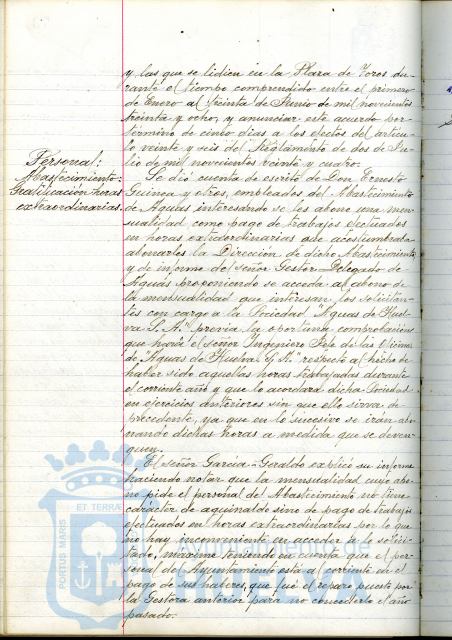 y las que se lidien en la Plaza de Toros du-
rante el tiempo comprendido entre el primero
de Enero al treinta de Junio de mil novecientos
treinta y ocho, y anunciar este acuerdo por
término de cinco días a los efectos del artícu-
lo veinte y seis del Reglamento de dos de Ju-
lio de mil novecientos veinte y cuatro.
Personal:
Abastecimiento:
Gratificación horas
extraordinarias.
Se dió cuenta de escrito de Don Ernesto
Guinea y otros, empleados del Abastecimiento
de Aguas interesando se les abone una men-
sualidad como pago de trabajos efectuados
en horas extraordinarias que acostumbraba
abonarles la Dirección de dicho Abastecimiento
y de informe del Señor Gestor-Delegado de
Aguas proponiendo se acceda al abono de
la mensualidad que interesan los solicitan-
tes con cargo a la Sociedad "Aguas de Huel-
va S.A." previa la oportuna comprobación
que haría el Señor Ingeniero Jefe de las Oficinas
de "Aguas de Huelva S.A." respecto al hecho de
haber sido aquellas horas trabajadas durante
el corriente año y que lo acordara dicha Sociedad
en ejercicios anteriores sin que ello sirva de
precedente, ya que en lo sucesivo se irán abo-
nando dichas horas a medida que se deven-
guen.
El Señor García-Geraldo explicó su informe
haciendo notar que la mensualidad cuyo abo-
no pide el personal del Abastecimiento no tiene
carácter de aguinaldo sino de pago de trabajos
efectuados en horas extraordinarias por lo que
no hay inconveniente en acceder a lo solici-
tado, máxime teniendo en cuenta que el per-
sonal del Ayuntamiento está al corriente en el
pago de sus haberes, que fué el reparo puesto por
la Gestora anterior para no concederlo el año
pasado.
PORTUS MARIS
ET TERRAE
Ayuntamiento de
HUELVA